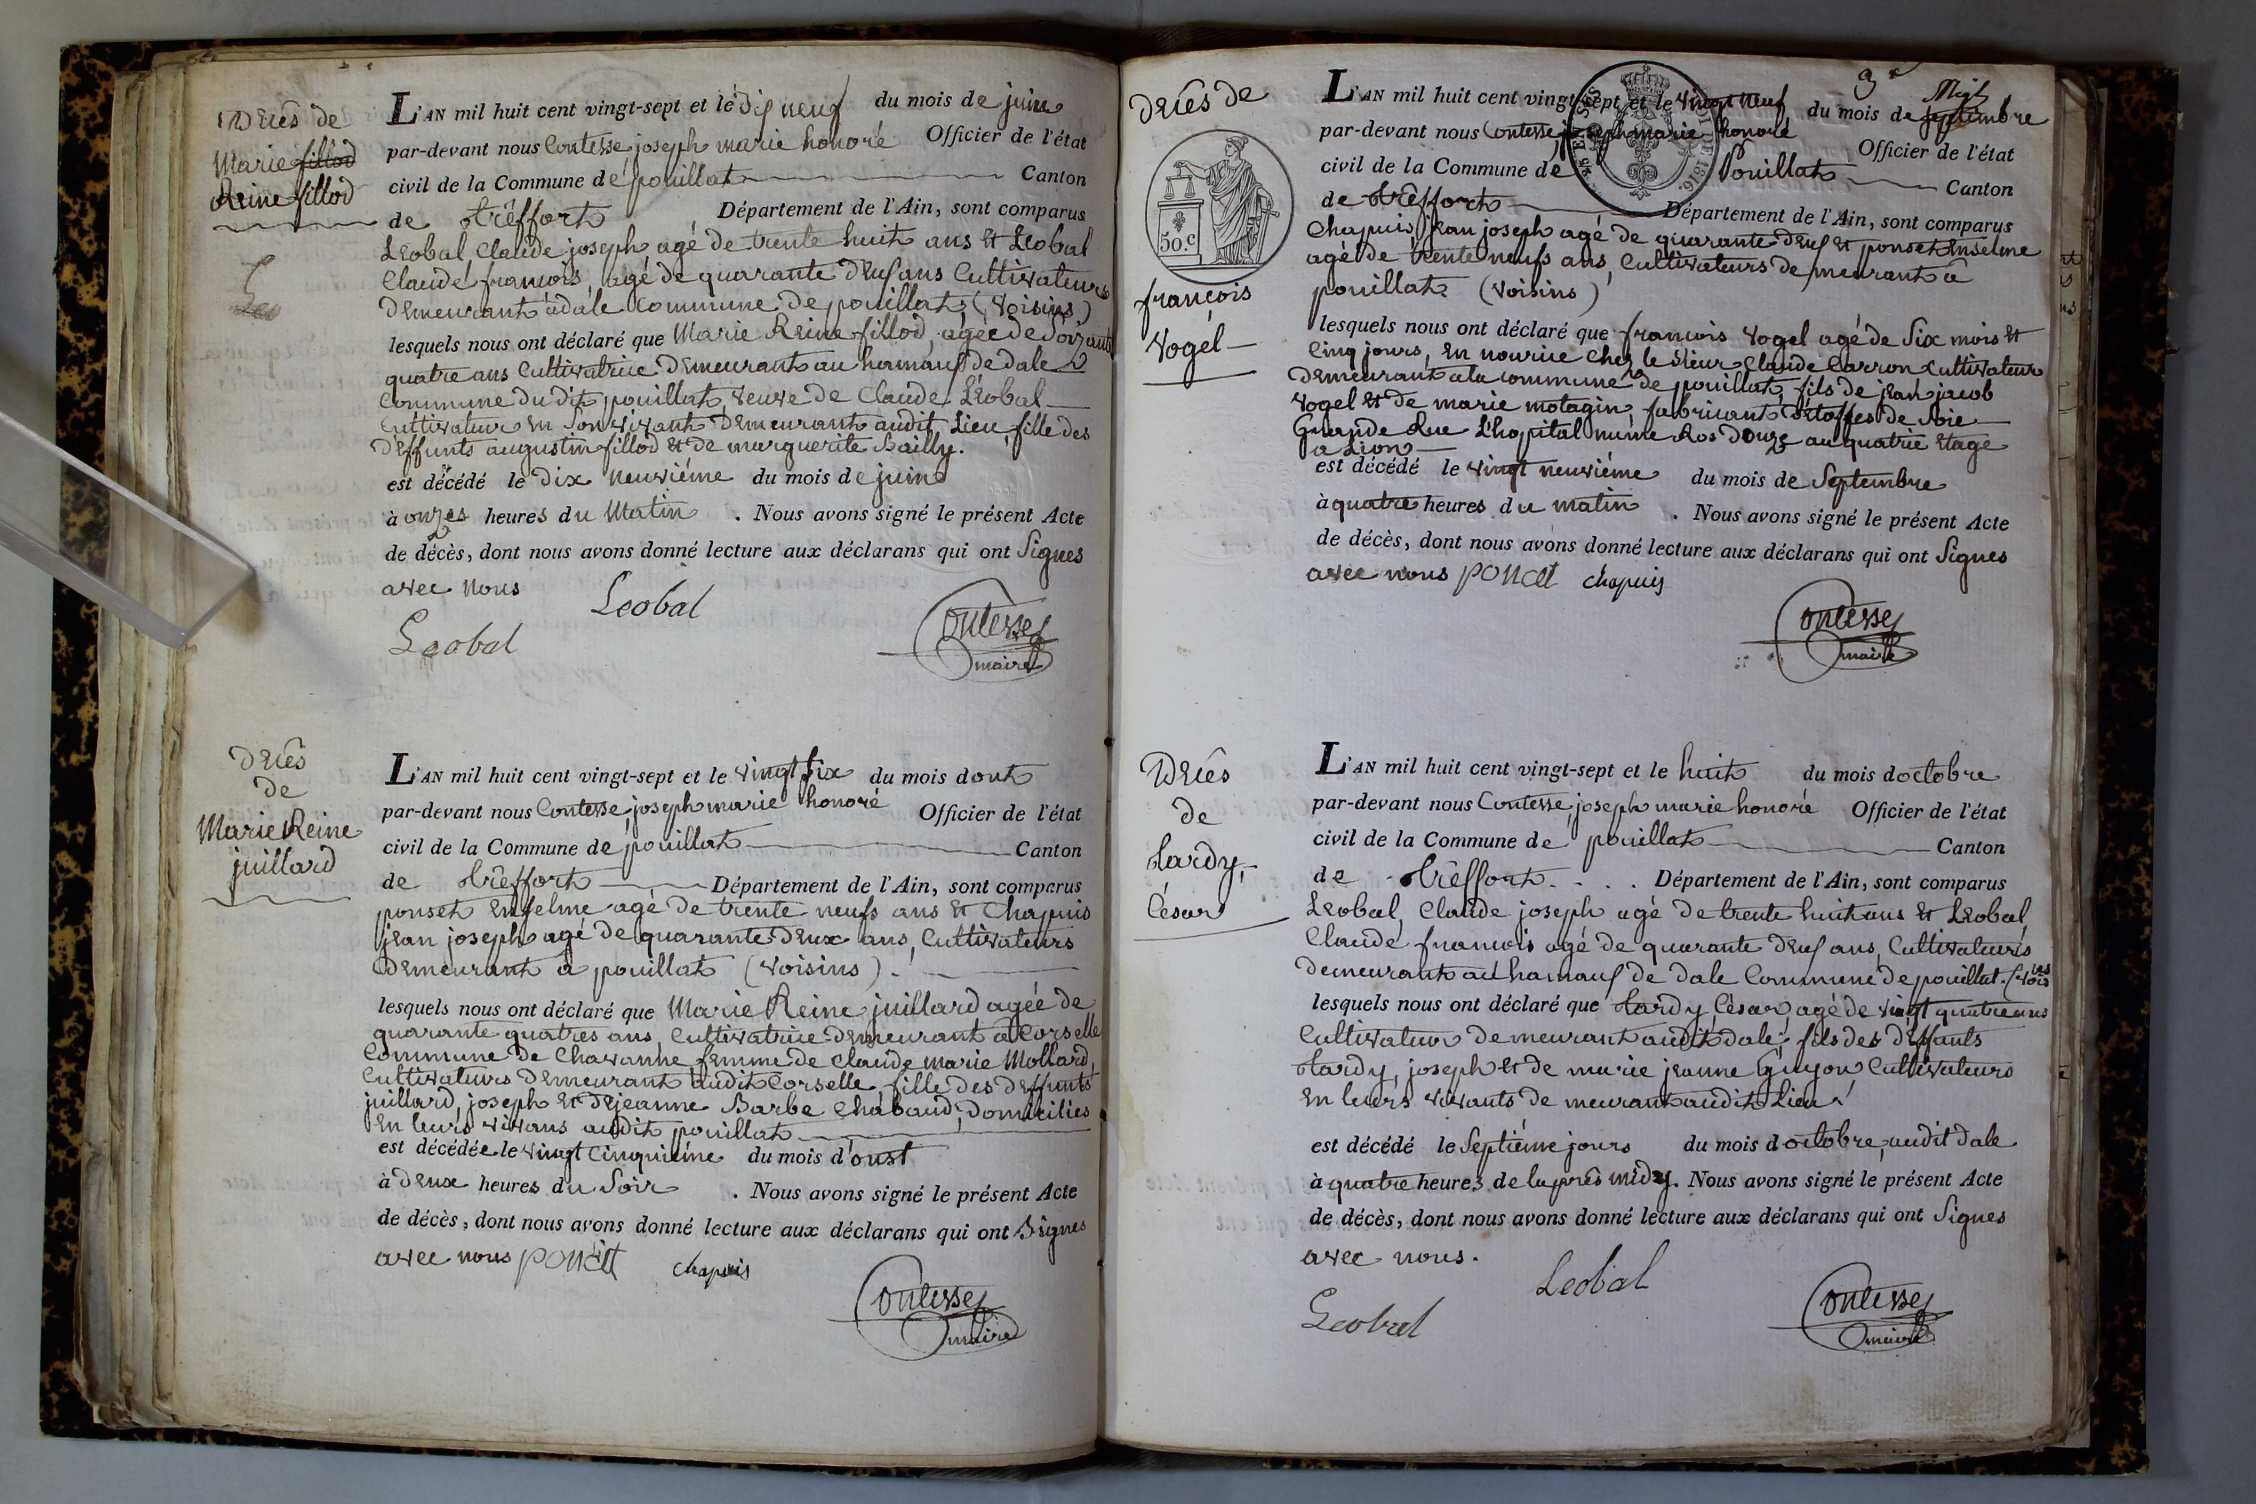 Décès de
Marie fillod
Reine fillod
L'AN mil huit cent vingt-sept et le dix neuf du mois de juin
par-devant nous Contesse, joseph marie honoré Officier de l'état
civil de la Commune de pouillat Canton
de tréffort Département de l'Ain, sont comparus
Léobal, Claude joseph, agé de trente huit ans Et Léobal
Claude françois, agé de quarante deux ans Cultivateurs
demeurant à dale commune de pouillat (voisins)
lesquels nous ont déclaré que Marie Reine fillod, agée de soixante
quatre ans Cultivatrice demeurant au hamaux de dale
Commune du dit pouillat, veuve de Claude Léobal
Cultivateur en son vivant demeurant audit Lieu, fille des
deffunts augustin fillod et de marguerite Bailly.
est décédé le dix neuviéme du mois de juin
à onzes heures du Matin . Nous avons signé le présent Acte
de décès, dont nous avons donné lecture aux déclarans qui ont Signes
avec nous
Leobal
Leobal
Contesse
maire
Décès
de
Marie Reine
juillard
L'AN mil huit cent vingt-sept et le vingt six du mois d'out
par-devant nous Contesse, joseph marie honoré Officier de l'état
civil de la Commune de pouillat Canton
de tréffort Département de l'Ain, sont comparus
ponset Enselme agé de trente neufs ans Et Chapuis
jean joseph agé de quarante deux ans, Cultivateurs
demeurant à pouillat (voisins).
lesquels nous ont déclaré que Marie Reine juillard agée de
quarante quatres ans, Cultivatrice demeurant à Corselle
Commune de Chavanne femme de Claude marie Mollard,
Cultivateurs demeurant audit Corselle, fille des deffunts
juillard, joseph Et de jeanne Barbe Chabaud, Domicilies
En leurs vivans audit pouillat
est décédée le vingt cinquiéme du mois d'oust
à deux heures du Soir . Nous avons signé le présent Acte
de décès, dont nous avons donné lecture aux déclarans qui ont Signes
avec nous Poncet chapuis
Contesse
maire
décès de
50.c
françois
Vogel
L'AN mil huit cent vingt-sept et le vingt neuf du mois de septembre
par-devant nous Contesse, joseph marie honoré Officier de l'état
civil de la Commune de Pouillat Canton
de tréffort Département de l'Ain, sont comparus
Chapuis, jean joseph agé de quarante deux et ponset Enselme
agé de trente neufs ans, Cultivateurs demeurant à
pouillat (voisins)
lesquels nous ont déclaré que françois Vogel agé de Six mois Et
Cinq jours, En nourice chez le Sieur Claude Carron Cultivateur
demeurant a la commune de pouillat, fils de jean jacob
Vogel et de marie motagin, fabricant détoffes de Soie
Grande Rue L'hopital numéros douze au quatrie Etage
a Lion
est décédé le vingt neuviéme du mois de Septembre
à quatre heures du matin . Nous avons signé le présent Acte
de décès, dont nous avons donné lecture aux déclarans qui ont Signes
avec nous Poncet chapuis
Contesse
maire
Décès
de
tardy,
César
L'AN mil huit cent vingt-sept et le huit du mois d'octobre
par-devant nous Contesse, joseph marie honoré Officier de l'état
civil de la Commune de pouillat Canton
de tréffort Département de l'Ain, sont comparus
Léobal, Claude joseph agé de trente huit ans Et Léobal,
Claude françois agé de quarante deux ans, Cultivateurs
demeurant au hamaux de dale Commune de pouillat. (vois ins
lesquels nous ont déclaré que tardy César, agé de vingt quatre ans
Cultivateur demeurant audit dale, fils des deffunts
tardy, joseph et de marie jeanne Guyon Cultivateurs
En leurs vivants demeurant audit Lieu.
est décédé le Septiéme jours du mois d'octobre, audit dale
à quatre heures de laprès midy. Nous avons signé le présent Acte
de décès, dont nous avons donné lecture aux déclarans qui ont Signes
avec nous.
Leobal
Leobal
Contesse
maire